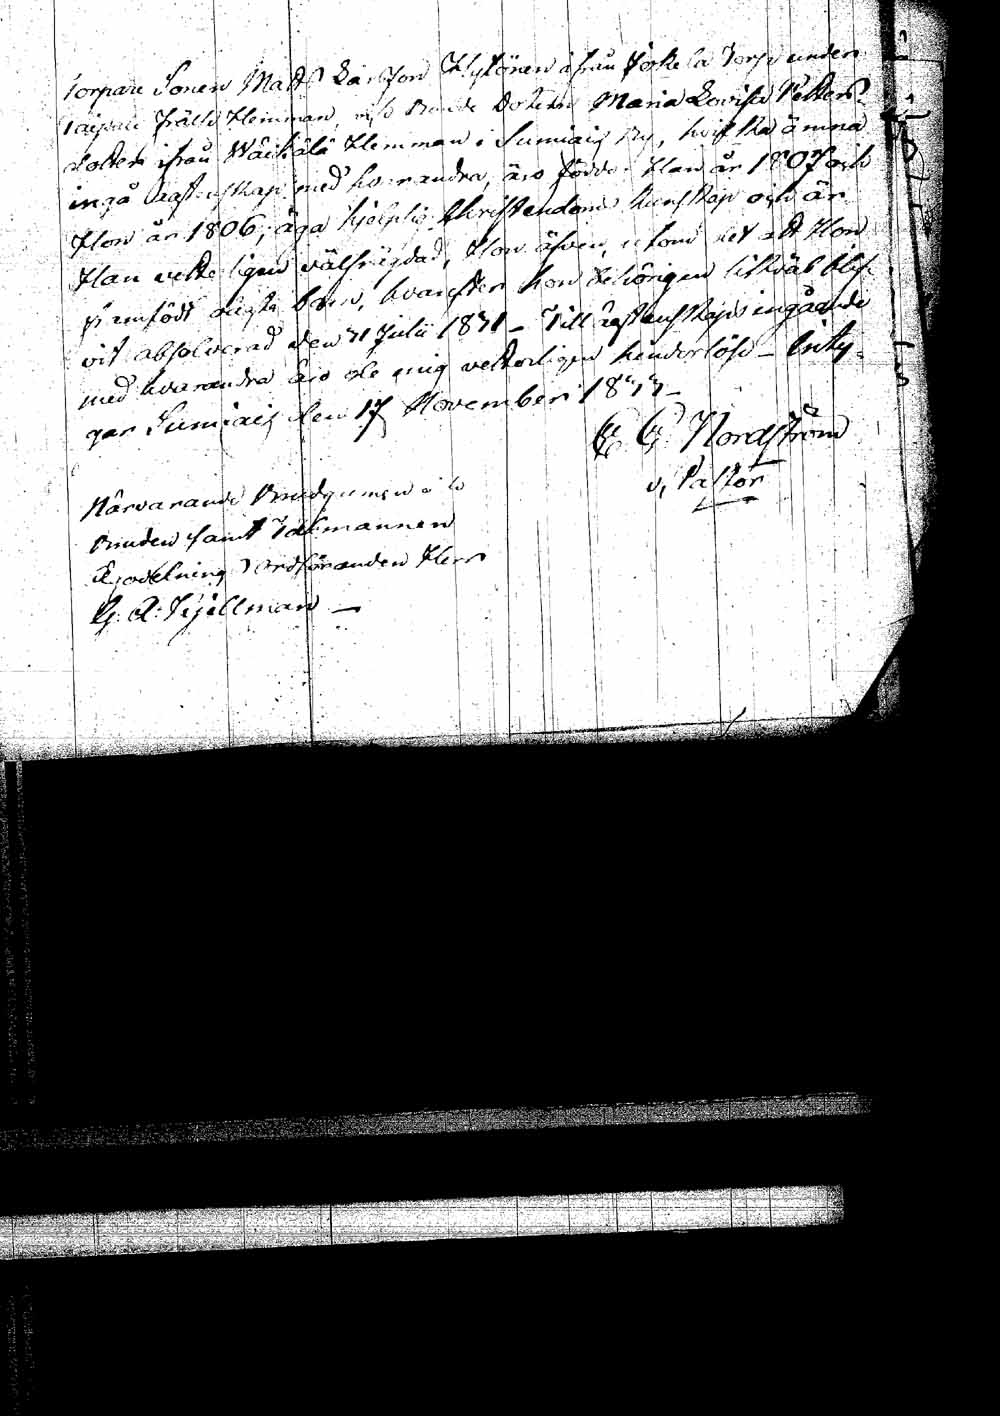 Torpare Sonen Matts Karlsson Hytönen ifrån Torp under
Frälse Hemman, och Bonde Dottern Maria Lovisa Petters
dotter ifrån Hemman i Sumiais By, hvilka ämna
ingå ägtenskap med hvarandra, äro födde Han år 1807 och
Hon år 1806, äga hjelplig Christendoms kunskap och är
Han vetterligen välfrägdad, Hon äfven, utom det att Hon
framfödt oägta barn, hvarefter hon behörigen blif-
vit absolverad den 31 Julii 1831 - Till ägtenskaps ingående
med hvarandra äro de mig vetterligen hinderlöse - Inty-
gar Sumiais den 17 November 1833 -
C G Nordström
v, Pastor
Närvarande Brudgummen och
Bruden samt Talmannen
Ordföranden Herr
G. A: Kjellman -